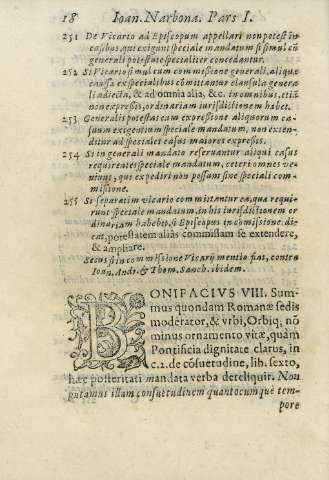 18 Ioan. Narbona. Pars I.
251 De Vicario ad Episcopum appellari non potest in
casibus, qui exigunt speciale mandatum si simul cū
generali potestate specialiter concedantur.
252 Si Vicario simul cum commissione generali, aliquæ
causæ ex specialibus cōmittantur clausula genera
li adiecta, & ad omnia alia, &c. in omnibus, etiā
non expresis, ordinariam iurisdictionem habet.
253 Generalis potestas eam expressione aliquorum ca-
suum exigentium speciale mandatum, non exten-
ditur ad speciales casus maiores expresis.
254 Si in generali mandato reserventur aliqui casus
requirentes speciale mandatum, ceteri omnes ve
niunt, qui expediri non possunt sine speciali com-
missione.
255 Si separatim vicario committantur ea, qua requi-
runt speciale mandatum, in his iurisdictionem or
dinariam habebit, si Episcopus in comissione di-
cat, potestatem aliàs commissam se extendere,
& ampliare.
Secus si in commissione Vicarij mentio fiat, contra
Ioan. Andr. & Thom. Sanch. ibidem.
BONIFACIVS VIII. Sum-
mus quondam Romanæ sedis
moderator, & vrbi, Orbiq; nō
minus ornamento vitæ, quàm
Pontificia dignitate clarus, in
c. 2. de cōsuetudine, lib. sexto,
hæc posteritati mandata verba dereliquit. Non
putamus illam consuetudinem quantocumque tem-
pore